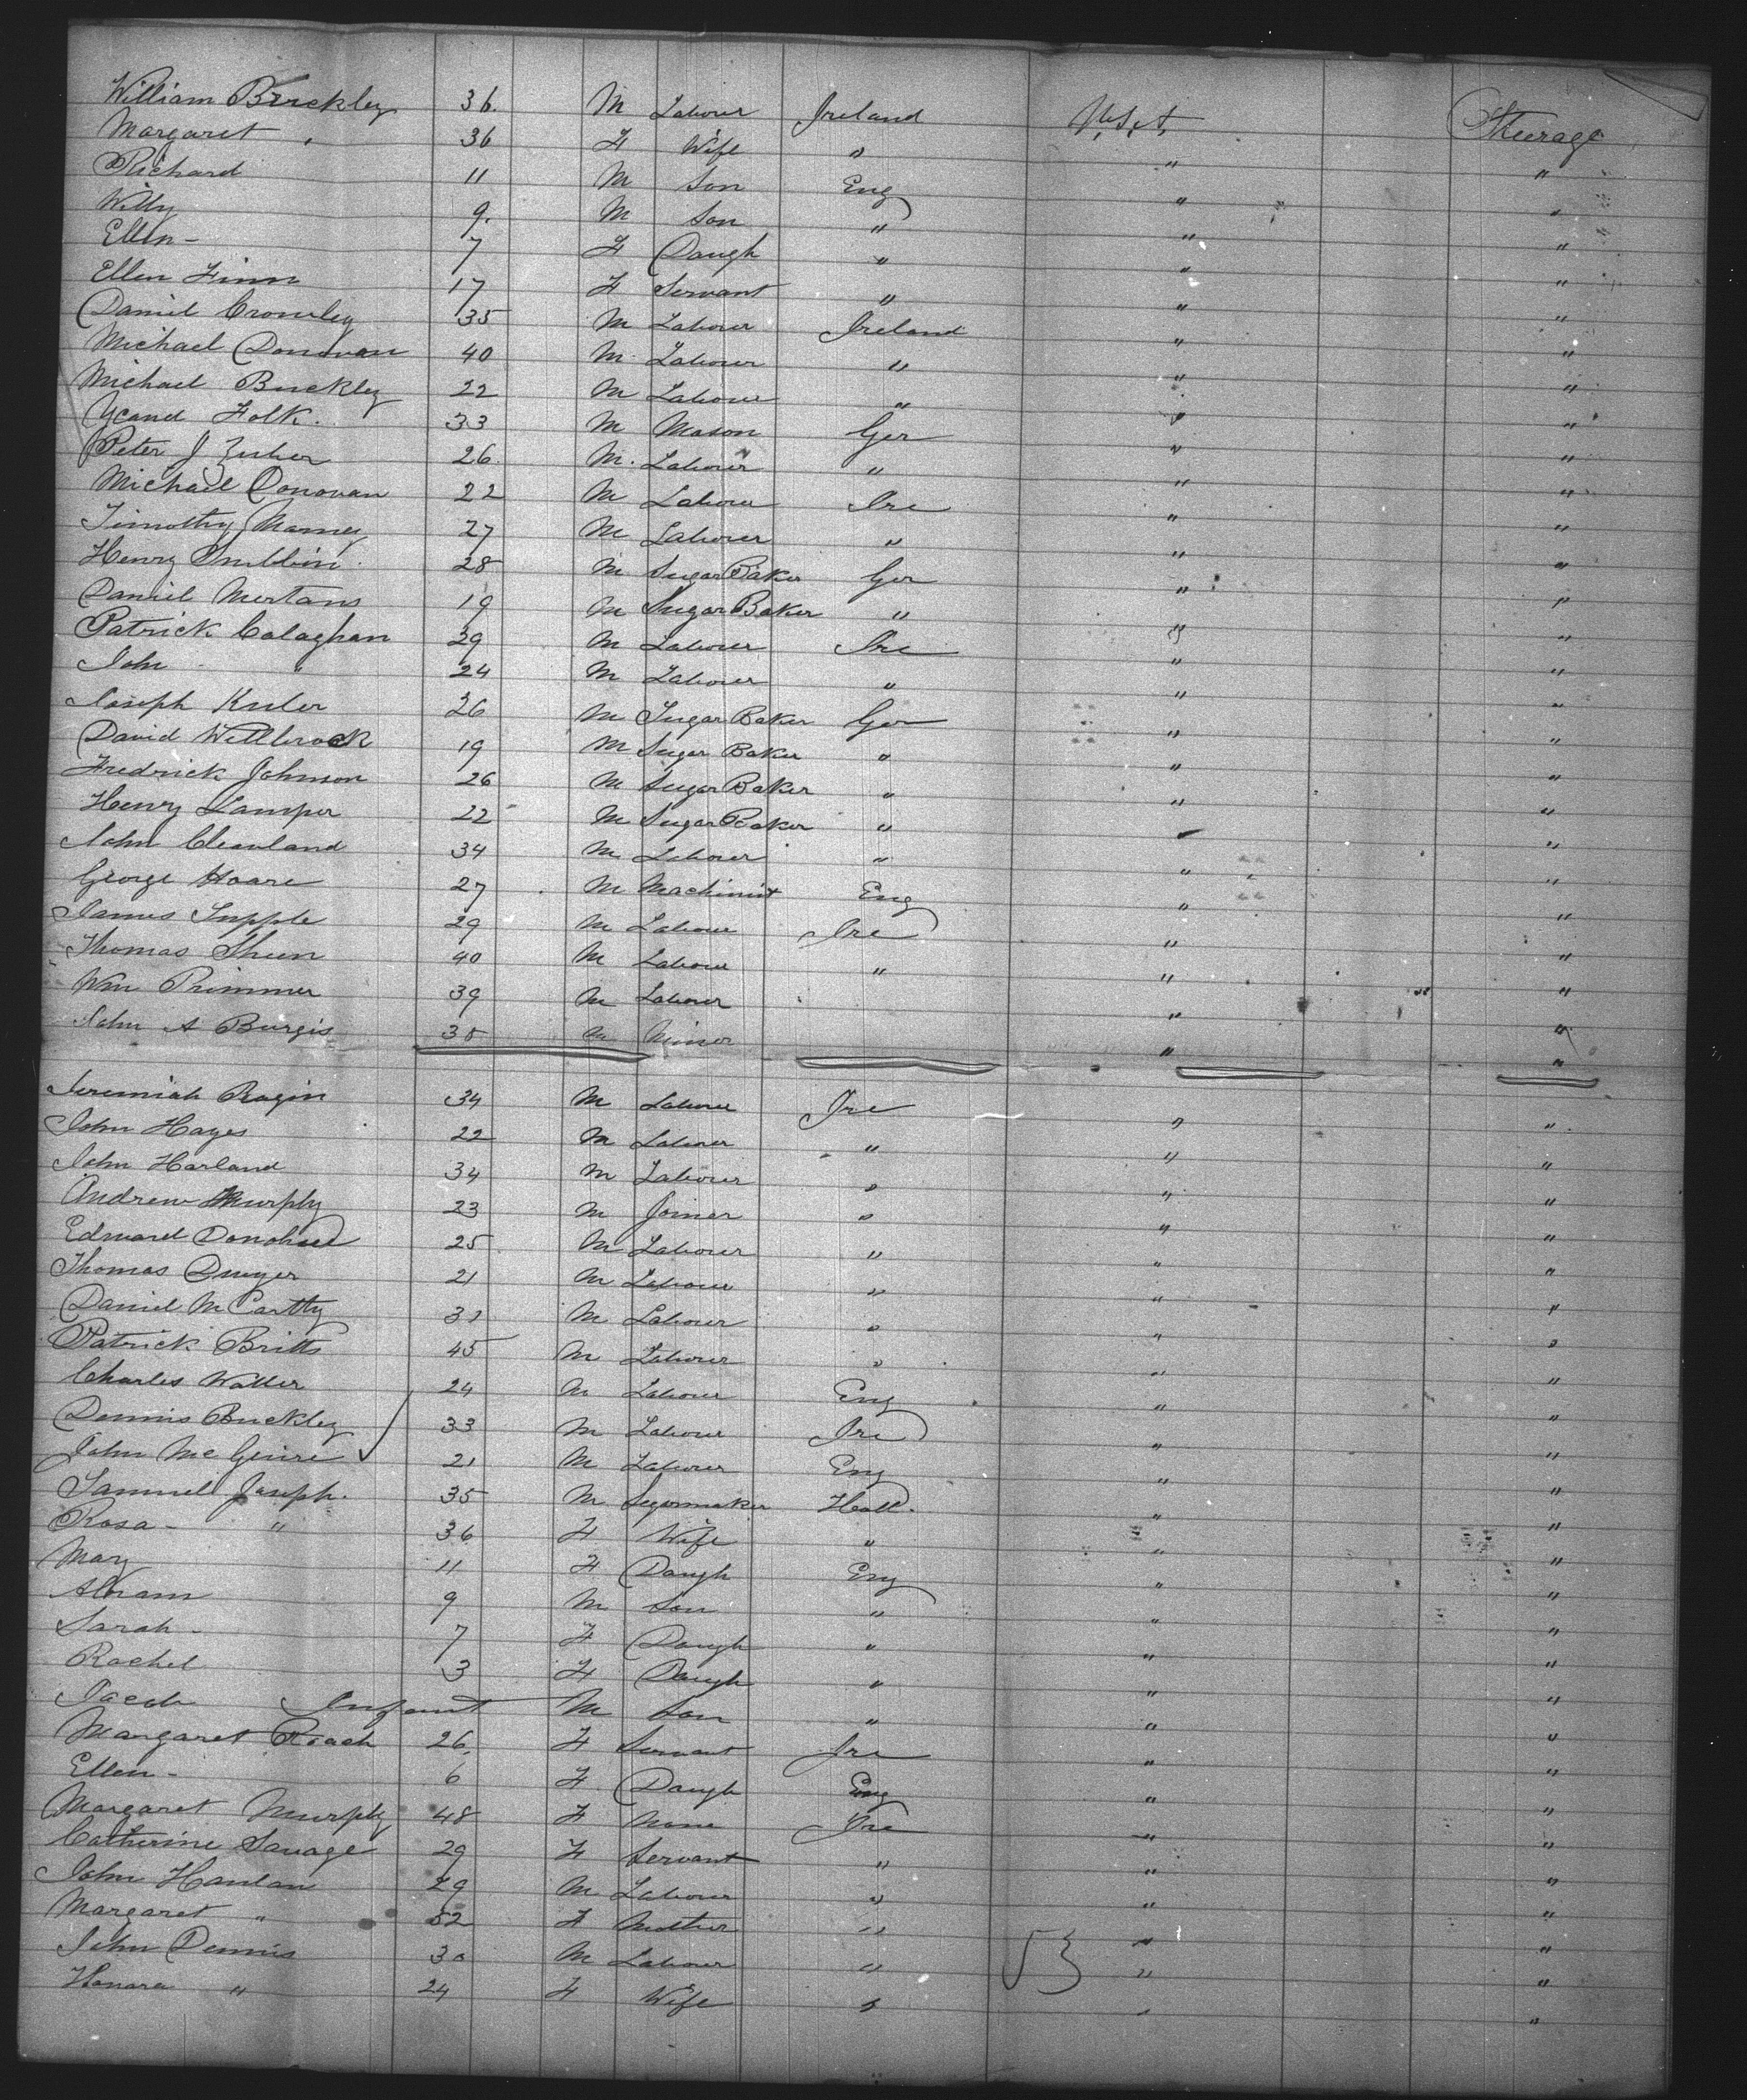 William Buckley 36. M Laborer Ireland U.S.A. Steerage
Margaret " 36 F Wife " " "
Richard 11 M Son Eng " "
Willy 9. M Son " " "
Ellen - 7 F Daugh " " "
Ellen Finn 17 F Servant " " "
Daniel Crowley 35 M Laborer Ireland " "
Michael Donovan 40 M Laborer " " "
Michael Buckley 22 M Laborer " " "
Folk. 33 M Mason Ger " "
Peter J Zuher 26. M. Laborer " " "
Michael Donovan 22 M Laborer Ire " "
Timothy Mamey 27 M Laborer " " "
Henry 28 M Sugar Baker Ger " "
Daniel Mertans 19 M Sugar Baker " " "
Patrick Calaghan 29 M Laborer Ire " "
John " 24 M Laborer " " "
Joseph Kuler 26 M Sugar Baker Ger " "
David Wellbrock 19 M Sugar Baker " " "
Fredrick Johnson 26 M Sugar Baker " " "
Henry Lamper 22 M Sugar Baker " " "
John Cleavland 34 M Laborer " " "
George Hoare 27 M Machinist Eng " "
James Supple 29 M Laborer Ire " "
Thomas Sheen 40 M Laborer " " "
Wm Primmer 39 M Laborer " "
John A Burgis 35 M Miner " "
Jeremiah Ragin 34 M Laborer Ire " "
John Hayes 22 M Laborer " " "
John Harland 34 M Laborer " " "
Andrew Murphy 23 M Joiner " " "
Edward Donohue 25 M Laborer " " "
Thomas Dwyer 21 M Laborer " " "
Daniel McCartty M Laborer " " "
Patrick Britts 45 M Laborer " " "
Charles Waller 24 M Laborer Eng " "
Dennis Buckley 33 M Laborer Ire " "
John McGuire 21 M Laborer Eng " "
Samuel Joseph. 35 M Segarmaker Holl. " "
Rosa - " 36 F Wife " " "
Mary 11 F Daugh Eng " "
Abram 9 M Son " " "
Sarah - 7 F Daugh " " "
Rachel 3 F Daugh " " "
Jacob Infant M Son " " "
Margaret Roach 26. F Servant Ire " "
Ellen - 6 F Daugh Eng " "
Margaret Murphy 48 F None Ire " "
Catherine Savage 29 F Servant " " "
John Hanlan 29 M Laborer " " "
Margaret " 52 F Mother " " "
John Dennis 30 M Laborer " 53 " "
Hanora " 24 F Wife " " "